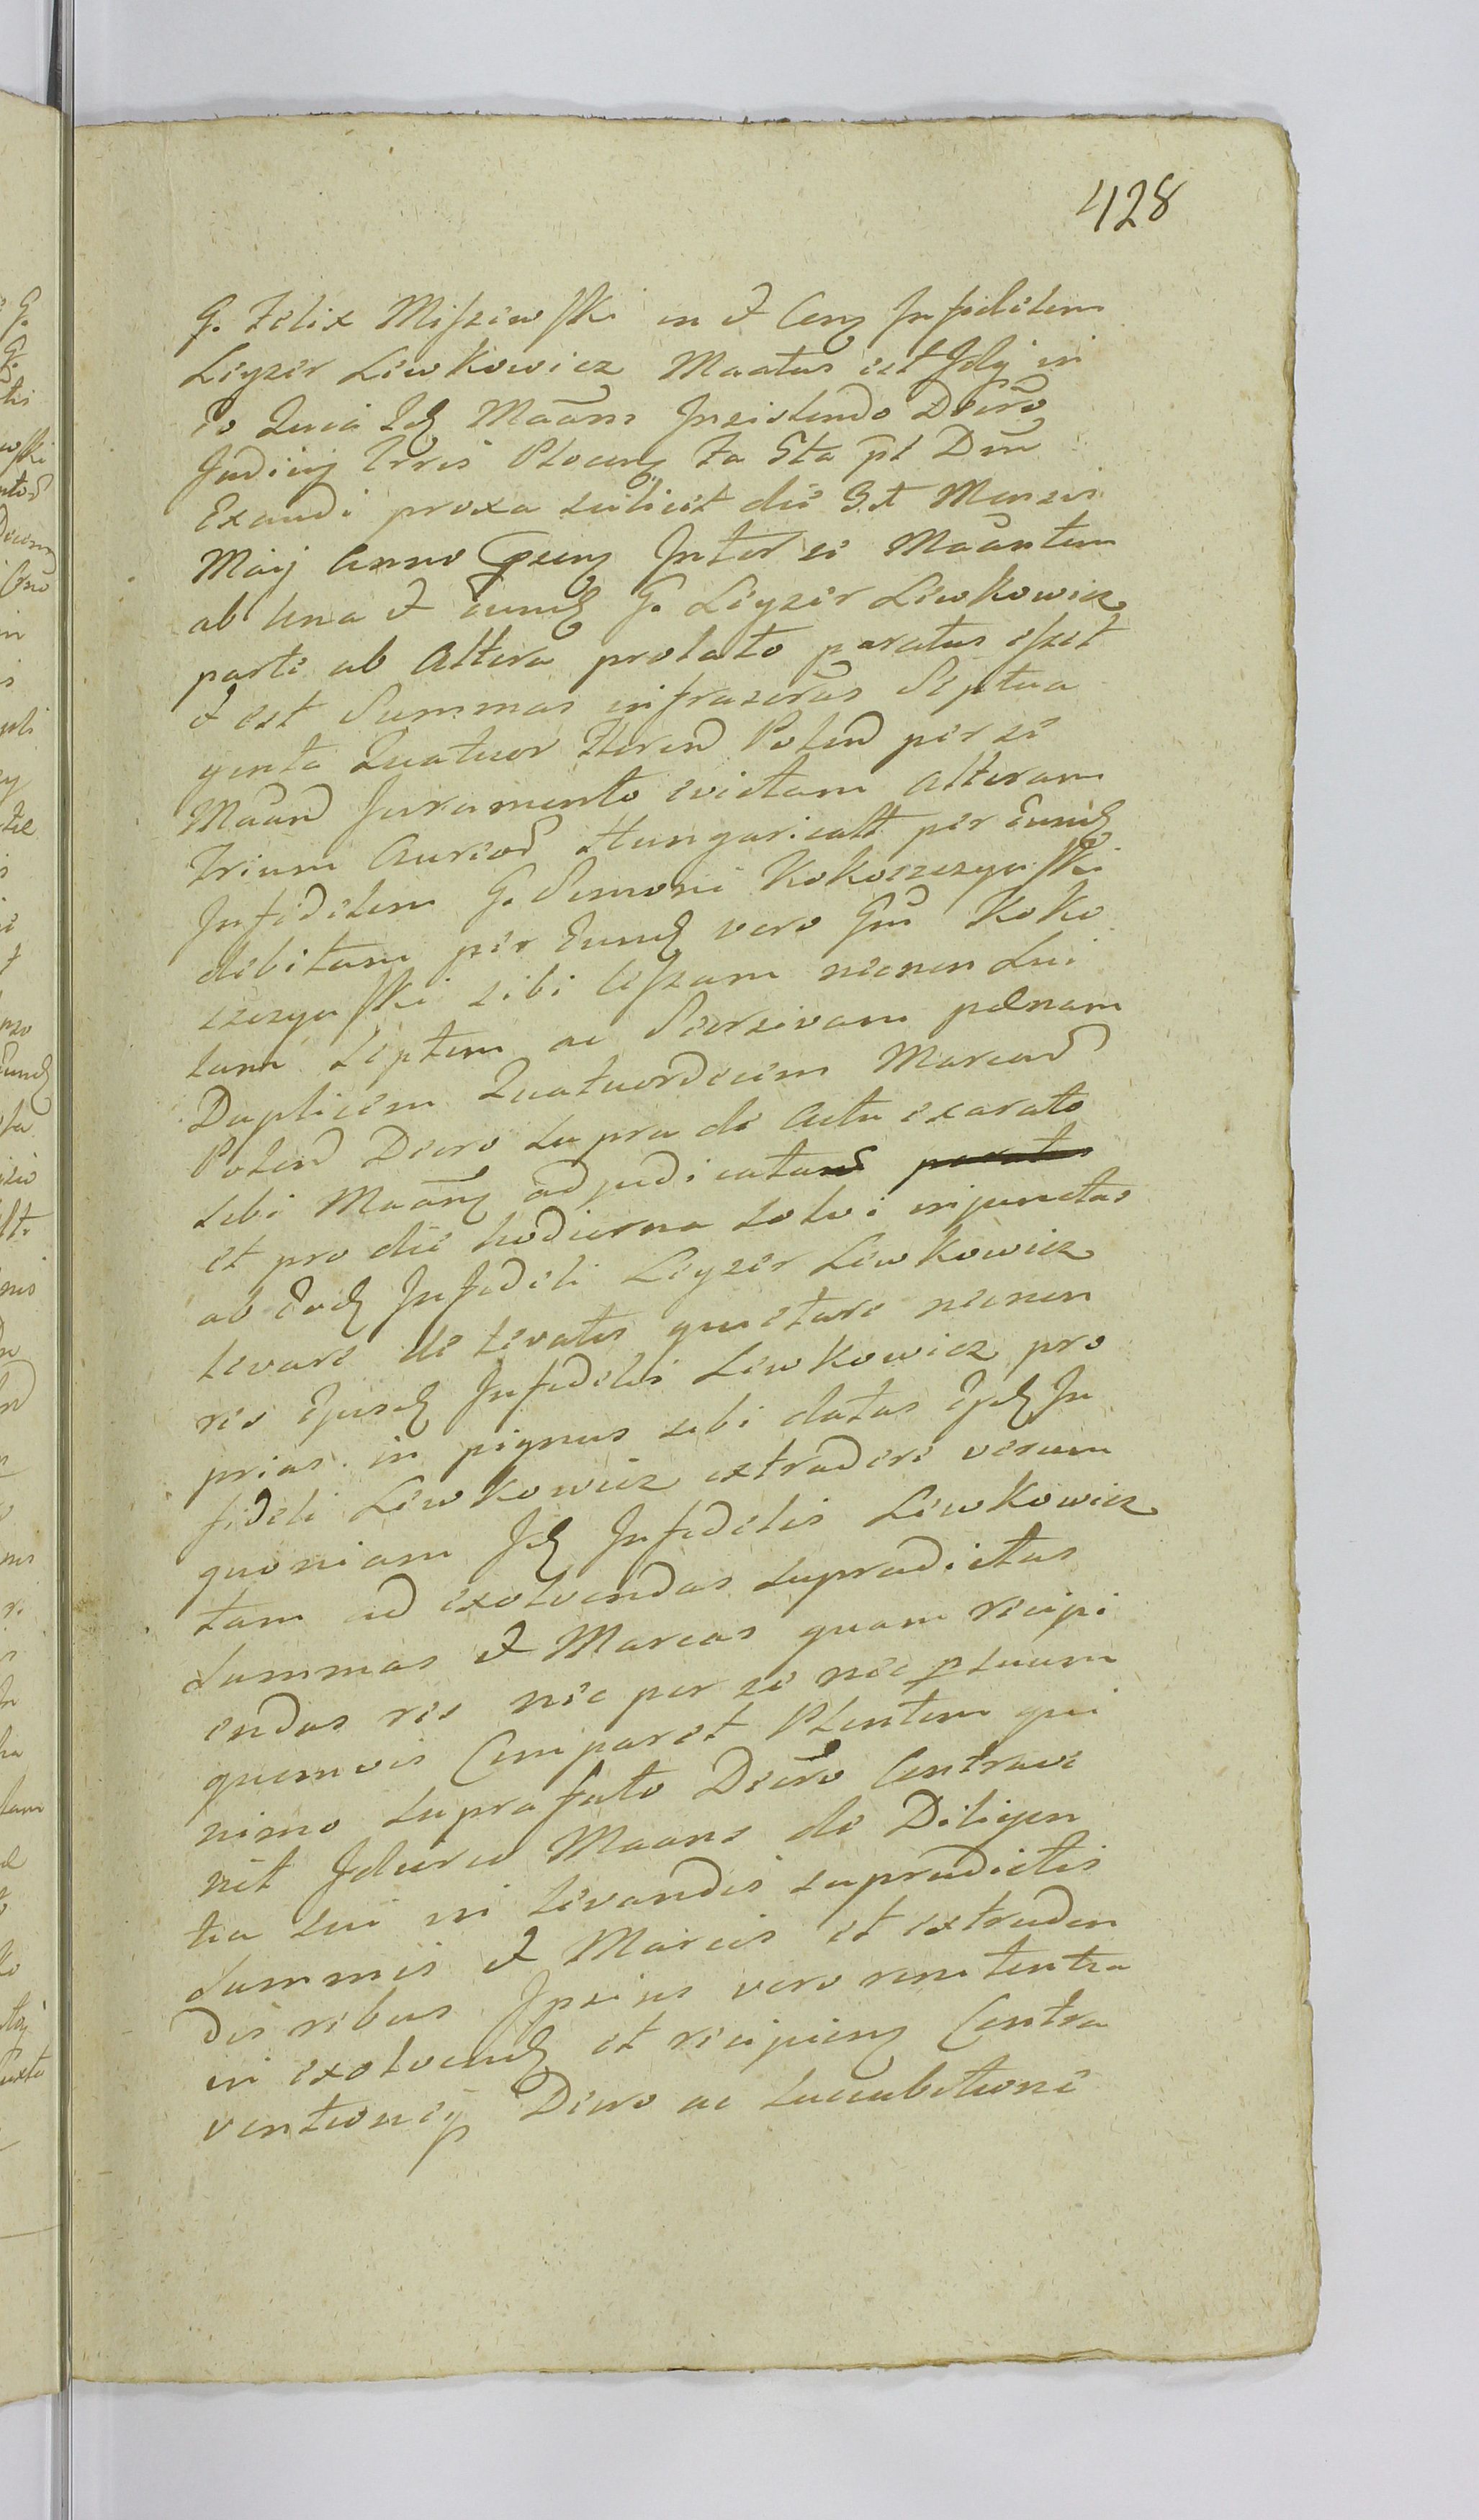 428
G. Felix Miszewski in et Con Infidelem
Leyzer Lewkowicz Maatus est Idq in
eo Quia Idq Maans Insistendo Decro
Judicij Trris Plocen Fa 5ta pt Dnn
Exaudi proxa scilicet die 3t Mensis
Maij Anno psen Inter se Maantem
ab Una et eundq G. Leyzer Lewkowicz
parte ab Altera prolato paratus eszet
et est Summas infrascras Septua
ginta Quatuor floren Polon per se
Maan Juramento evictam alteram
Trium Aureor Hungaricall per Eundq
Infidelem G. Simoni Kokoszczynski
debitam per Eundq vero Gm Koko
szczynski sibi Ceszam necnon Lui
tam Septem ac Seorsivam pœnam
Duplicem Quatuordecim Marcar
Polon Decro supra de Actu exarato
sibi Maan adjudicatas
et pro die hodierna solvi injunctas
ab Eodq Infideli Leyzer Lewkowicz
levare de levatis quietare necnon
res Ejusdq Infidelis Lewkowicz pro
prias in pignus sibi datas Epdq In
fideli Lewkowicz extradere verum
quoniam Idq Infidelis Lewkowicz
tam ad exolvendas supradictas
Summas et Marcas quam recipi
endas res nec per se nec p suum
quemvis Comparet Plentem qui
nimo suprafato Decro Contrave
nit Idcirco Maans de Diligen
tia sui in levandis supradictis
Summis et Marcis et extraden
dis rebus Ipsius vero renitentia
in exolvendq et recipien Contra
ventioneq Decro ac succubitione